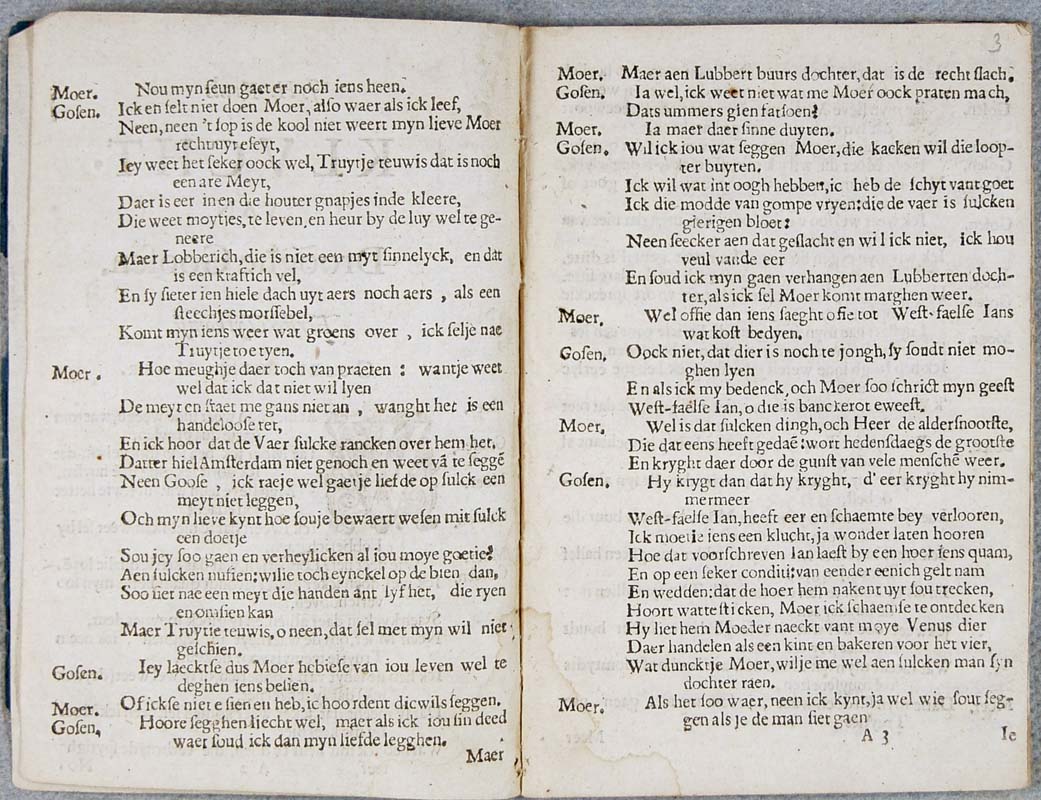 Moer. Nou myn seun gaet er noch iens heen.
Gosen. Ick en selt niet doen Moer, also waer als ick leef,
Neen, neen 't sop is de kool niet weert myn lieve Moer
rechtuyt eseyt,
Iey weet het seker oock wel, Truytje teuwis dat is noch
een are Meyt,
Daer is eer in en die houter gnapjes inde kleere,
Die weet moytjes, te leven, en heur by de luy wel te ge-
neere
Maer Lobberich, die is niet een myt sinnelyck, en dat
is een kraftich vel,
En sy sieter ien hiele dach uyt aers noch aers, als een
steechjes morssebel,
Komt myn iens weer wat groens over, ick selje nae
Truytje toe tyen.
Moer. Hoe meughje daer toch van praeten: want je weet
wel dat ick dat niet wil lyen
De meyt en staet me gans niet an, wanght het is een
handeloose ter,
En ick hoor dat de Vaer sulcke rancken over hem het.
Datter hiel Amsterdam niet genoch en weet vã te seggẽ
Neen Goose, ick raeje wel gaetje liefde op sulck een
meyt niet leggen,
Och myn lieve kynt hoe souje bewaert wesen mit sulck
een doetje
Sou jey soo gaen en verheylicken al iou moye goetje?
Aen sulcken nusien: wilje toch eynckel op de bien dan,
Soo siet nae een meyt die handen ant lyf het, die ryen
en omsien kan
Maer Truytie teuwis, o neen, dat sel met myn wil niet
geschien.
Gosen. Iey laecktse dus Moer hebjese van iou leven wel te
deghen iens besien.
Moer. Of ickse niet e sien en heb, ic hoor dent dicwils seggen.
Gosen. Hoore segghen liecht wel, maer als ick iou sin deed
waer soud ick dan myn liefde legghen.
Maer
3
Moer. Maer aen Lubbert buurs dochter, dat is de recht slach.
Gosen. Ia wel, ick weet niet wat me Moer oock praten mach,
Dats ummers gien fatsoen?
Moer. Ia maer daer sinne duyten.
Gosen. Wil ick iou wat seggen Moer, die kacken wil die loop-
ter buyten.
Ick wil wat int oogh hebben, ic heb de schyt vant goet
Ick die modde van gompe vryen: die de vaer is sulcken
gierigen bloet:
Neen seecker aen dat geslacht en wil ick niet, ick hou
veul vande eer
En soud ick myn gaen verhangen aen Lubberten doch-
ter, als ick sel Moer komt marghen weer.
Moer. Wel offie dan iens saeght ofie tot West-faelse Ians
wat kost bedyen.
Gosen. Oock niet, dat dier is noch te jongh, sy sondt niet mo-
ghen lyen
En als ick my bedenck, och Moer soo schrickt myn geest
West-faelse Ian, o die is banckerot eweest.
Moer. Wel is dat sulcken dingh, och Heer de aldersnootste,
Die dat eens heeft gedaẽ: wort hedensdaegs de grootste
En kryght daer door de gunst van vele menschẽ weer.
Gosen. Hy krygt dan dat hy kryght, d'eer kryght hy nim-
mermeer
West-faelse Ian, heeft eer en schaemte bey verlooren,
Ick moetje iens een klucht, ja wonder laten hooren
Hoe dat voorschreven Ian laest by een hoer iens quam,
En op een seker conditi: van eender eenich gelt nam
En wedden: dat de hoer hem nakent uyt sou trecken,
Hoort watte sticken, Moer ick schaemse te ontdecken
Hy liet hem Moeder naeckt vant moye Venus dier
Daer handelen als een kint en bakeren voor het vier,
Wat duncktje Moer, wil je me wel aen sulcken man syn
dochter raen.
Moer. Als het soo waer, neen ick kynt, ja wel wie sout seg-
gen als je de man siet gaen
A 3 Ie